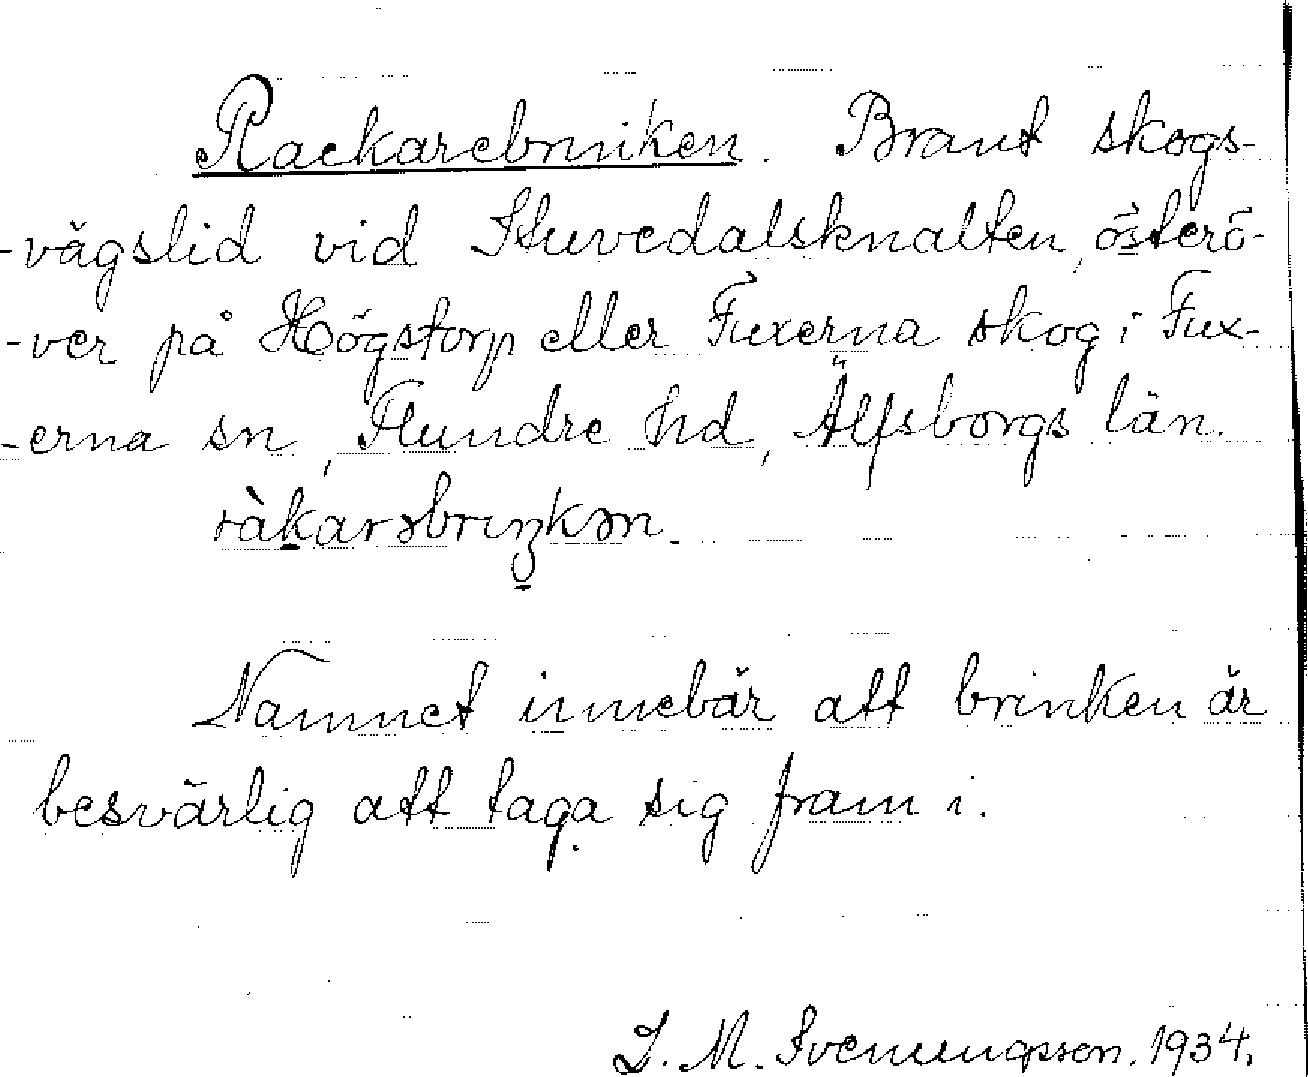 Rackarebrniken. Brant skogs-
-vägslid vid Stuvedalsknalten, österö-
-ver på Högstorp eller Fuxerna skog i Fux-
-erna sn, Flundre hd, Älfsborgs län.
ràkarəbriŋkən.
Namnet innebär att brinken är
besvärlig att taga sig fram i.
J. M. Svenungsson. 1934.